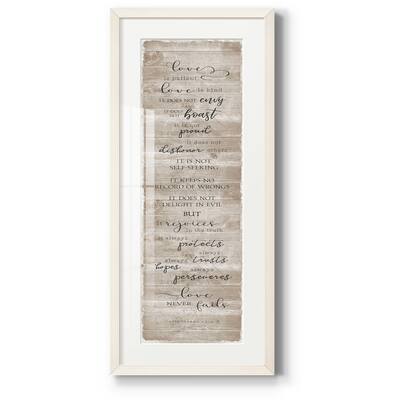 love
is patient
love is kind
IT DOES NOT envy
it does not boast
it is not
proud
it does not
dishonor others
IT IS NOT
SELF-SEEKING
IT KEEPS NO
RECORD OF WRONGS
IT DOES NOT
DELIGHT IN EVIL
BUT
it rejoices
in the truth
it always
protects
always trusts
hopes always
perseveres
love
NEVER fails